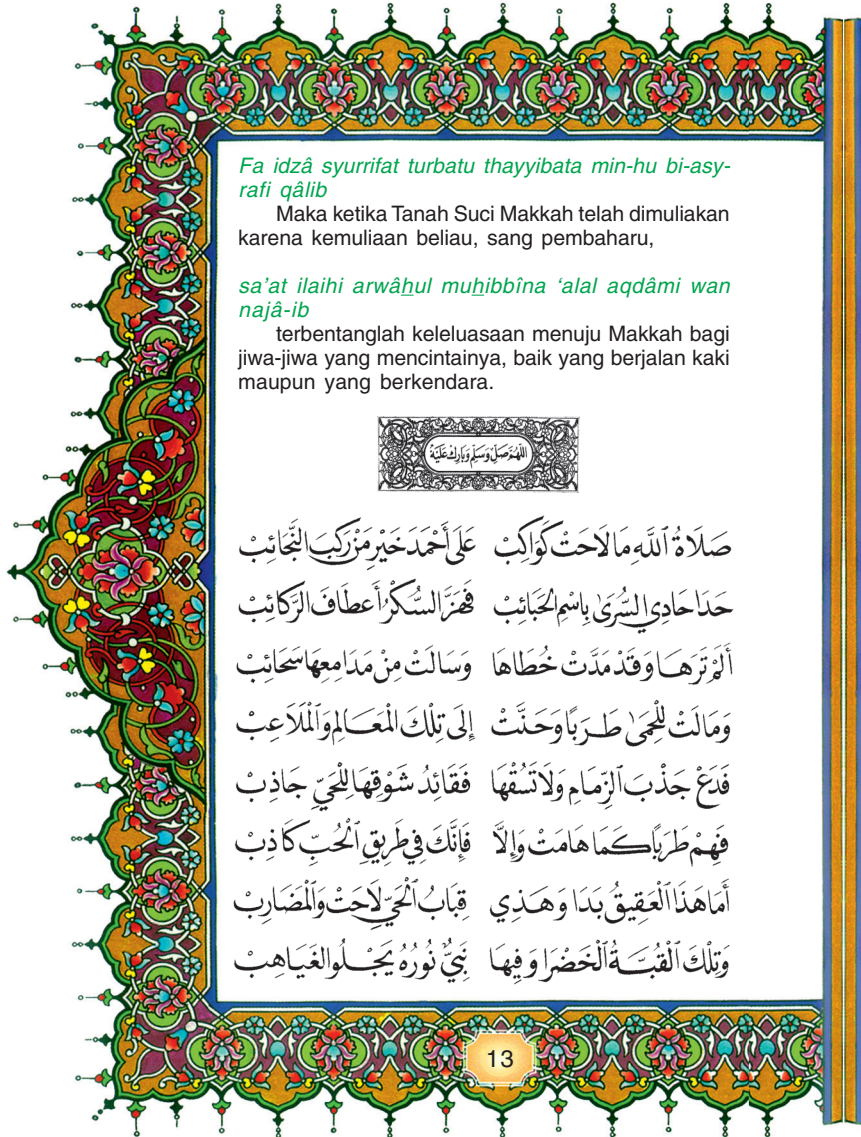 Fa idzâ syurrifat turbatu thayyibata min-hu bi-asy-
rafi qâlib
Maka ketika Tanah Suci Makkah telah dimuliakan
karena kemuliaan beliau, sang pembaharu,
sa'at ilaihi arwâhul muhibbîna 'alal aqdâmi wan
najâ-ib
terbentanglah keleluasaan menuju Makkah bagi
jiwa-jiwa yang mencintainya, baik yang berjalan kaki
maupun yang berkendara.
اللّٰهُمَّ صَلِّ وَسَلِّمْ وَبَارِكْ عَلَيْهِ
صَلَاةُ ٱللَّهِ مَا لَاحَتْ كَوَاكِبْ عَلَى أَحْمَدَ خَيْرِ مَنْ رَكِبَ النَّجَائِبْ
حَدَا حَادِي السُّرَىٰ بِاسْمِ الْحَبَائِبْ فَهَزَّ السُّكْرُ أَعْطَافَ الرَّكَائِبْ
أَلَمْ تَرَهَا وَقَدْ مَدَّتْ خُطَاهَا وَسَالَتْ مِنْ مَدَامِعِهَا سَحَائِبْ
وَمَالَتْ لِلْحِمَىٰ طَرَبًا وَحَنَّتْ إِلَى تِلْكَ الْمَعَالِمِ وَالْمَلَاعِبْ
فَدَعْ جَذْبَ ٱلزِّمَامِ وَلَا تَسُقْهَا فَقَائِدُ شَوْقِهَا لِلْحَيِّ جَاذِبْ
فَهِمْ طَرَبًا كَمَا هَامَتْ وَإِلَّا فَإِنَّكَ فِي طَرِيقِ ٱلْحُبِّ كَاذِبْ
أَمَا هَذَا ٱلْعَقِيقُ بَدَا وَهَذِي قِبَابُ ٱلْحَيِّ لَاحَتْ وَٱلْمَضَارِبْ
وَتِلْكَ ٱلْقُبَّةُ ٱلْخَضْرَا وَفِيهَا نَبِيٌّ نُورُهُ يَجْلُو الْغَيَاهِبْ
13